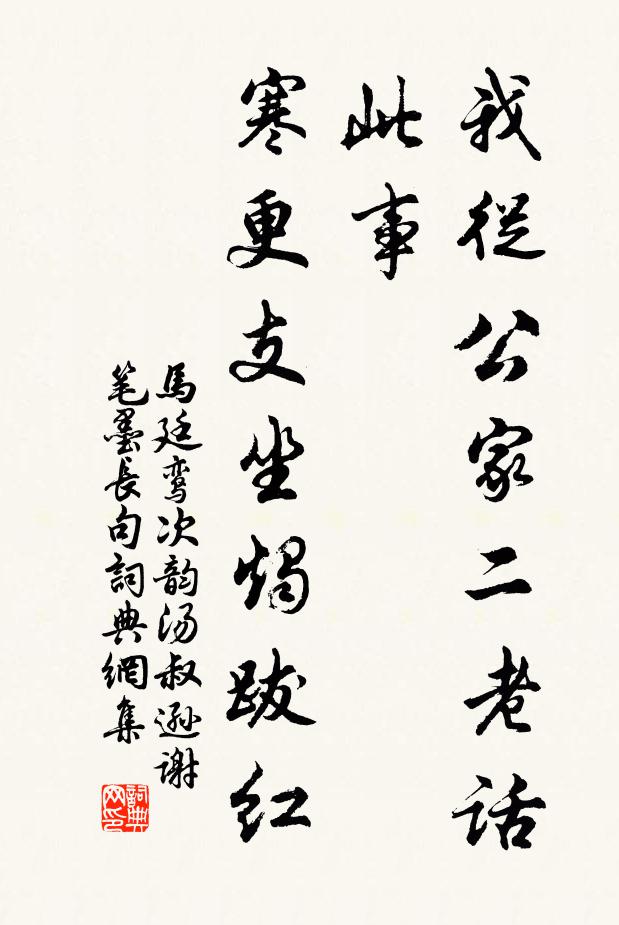 我從公家二老話
此事
寒更支坐燭跋紅
馬廷鸞次韵汤叔遜謝
笔墨長句詞典網集
詞典
网